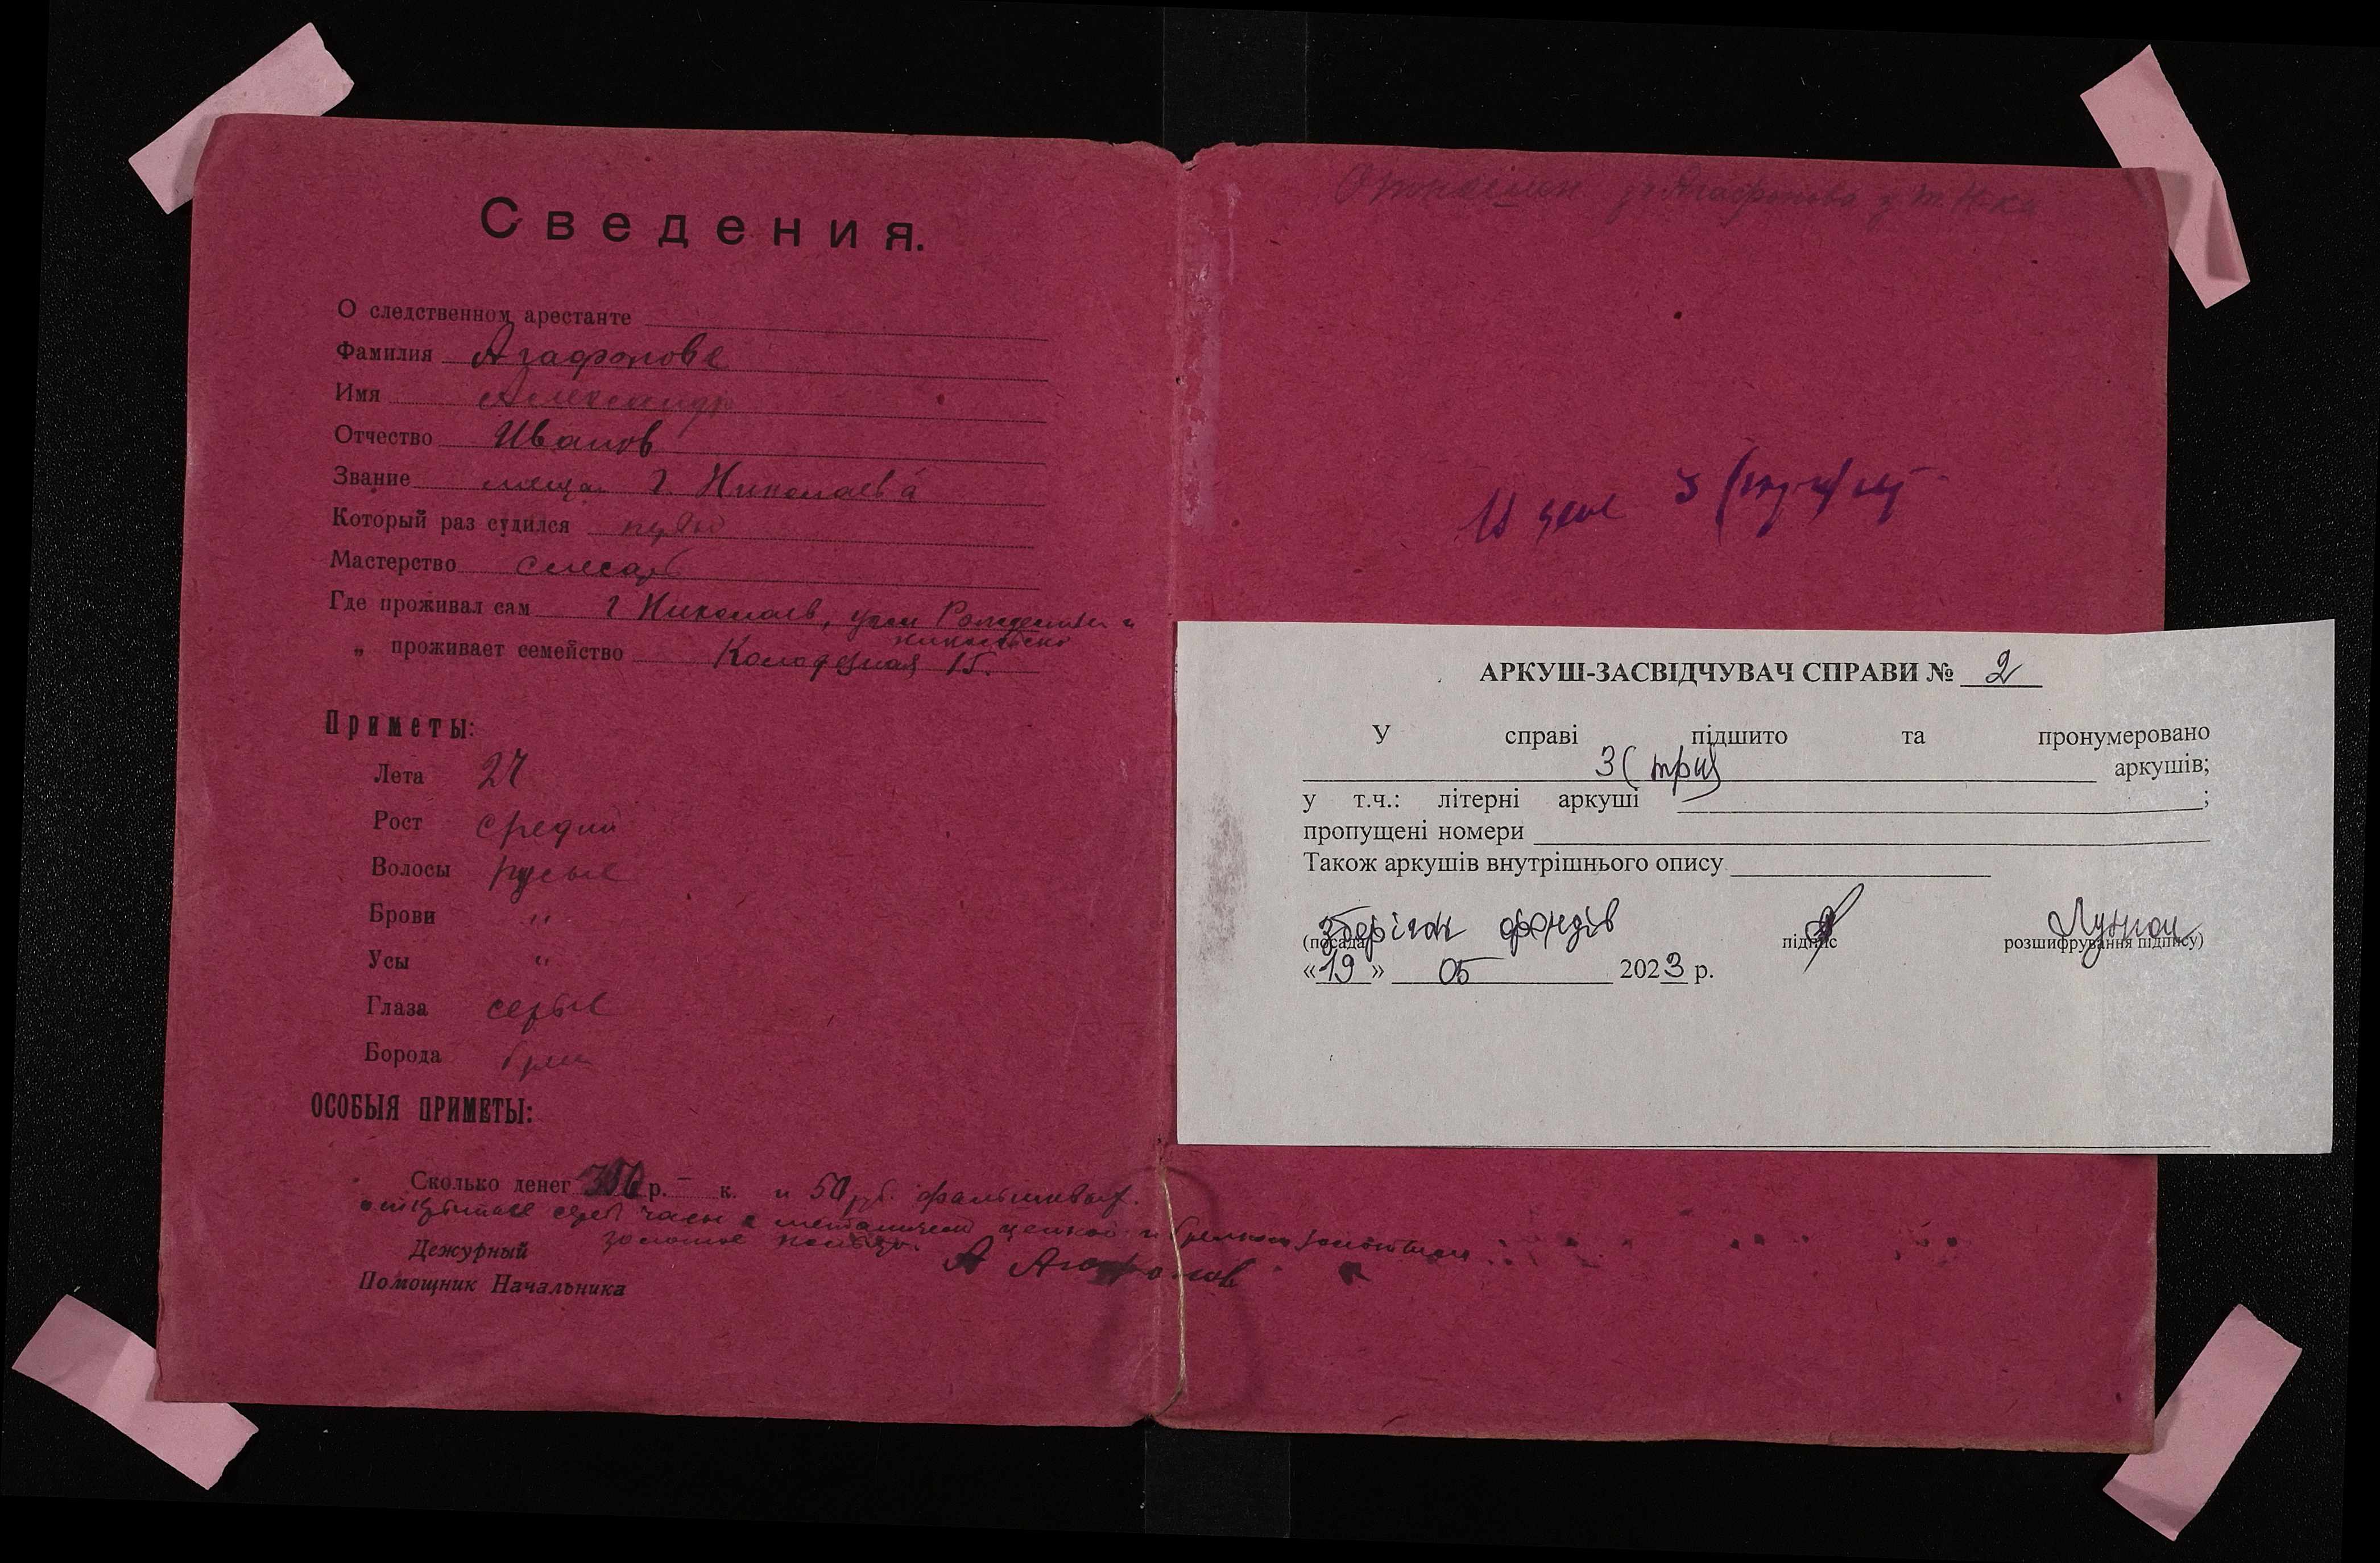 Сведения.
О следственном арестанте
Фамилия Агафонове
Имя Александр
Отчество Иванов
Звание мещан. г. Николаева
Который раз судился первый
Мастерство слесарь
Где проживал сам г Николаев, угол
„ проживает семейство Колодезная 15.
Приметы:
Лета 27
Рост средний
Волосы русые
Брови "
Усы "
Глаза серые
Борода
ОСОБЫЯ ПРИМЕТЫ:
Сколько денег р. – к. и 50 руб. фальшивых.
часы с цепкой и
золотое кольцо.
Дежурный
Помощник Начальника
А Агафонов
В деле 3 (три)
АРКУШ-ЗАСВІДЧУВАЧ СПРАВИ № 2
У справі підшито та пронумеровано
3 (три) аркушів;
у т.ч.: літерні аркуші ;
пропущені номери
Також аркушів внутрішнього опису
Зберігач фондів
(посада підпис розшифрування підпису)
«19» 05 2023 р.